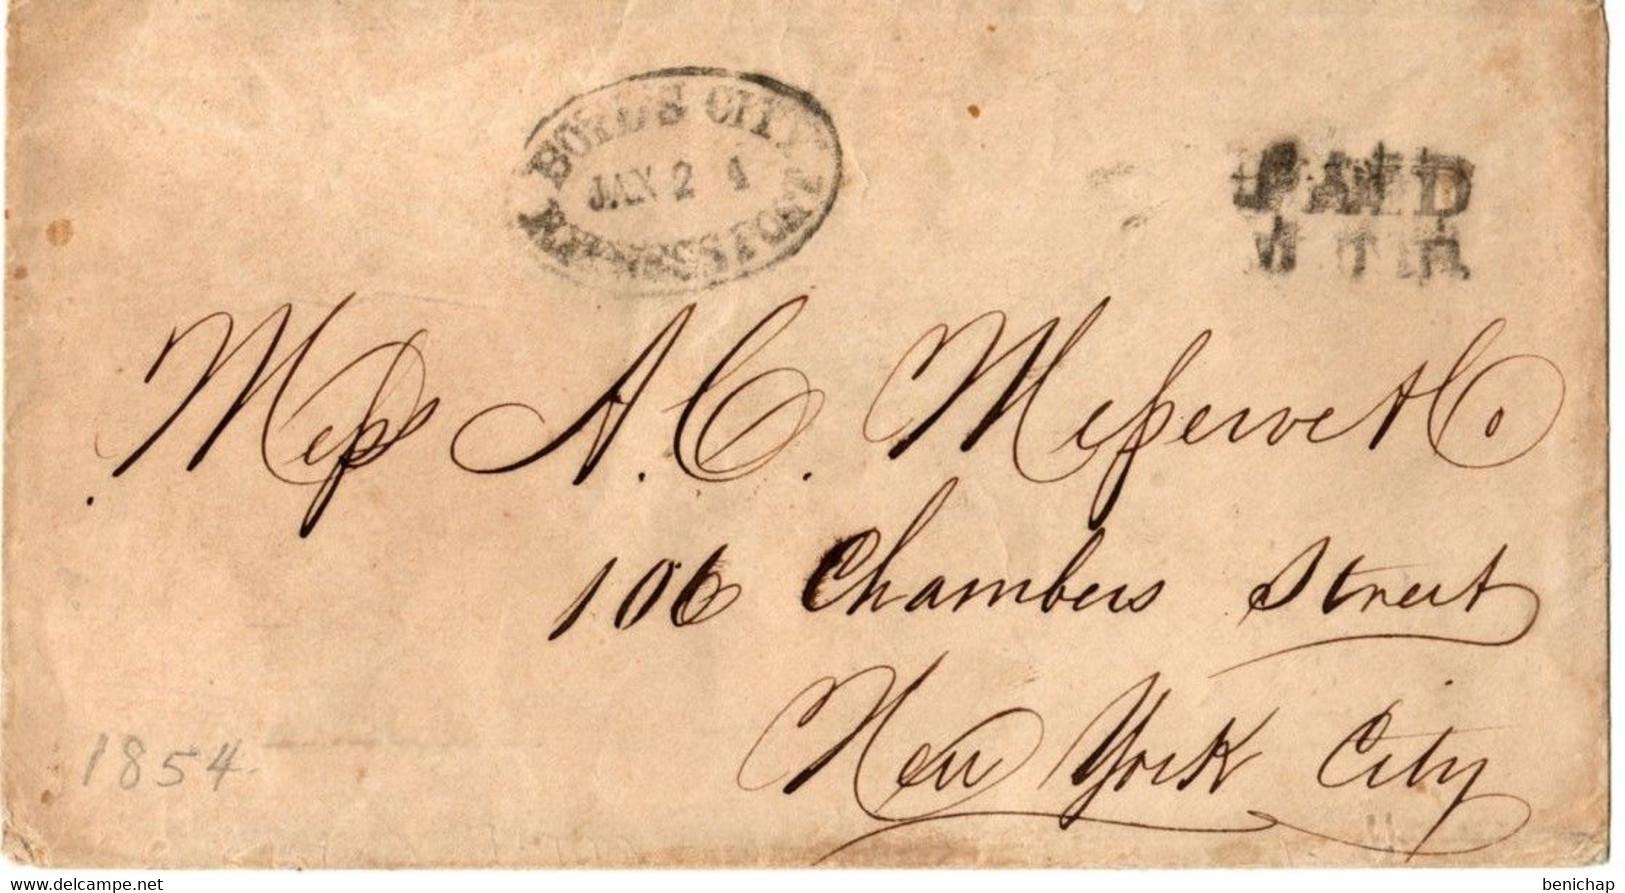 BOYD'S CITY
JAN 2 4
EXPRESS POST
PAID
Mess A. C. Messerve & Co
106 Chambers Street
New York City
1854
delcampe.net
benichap